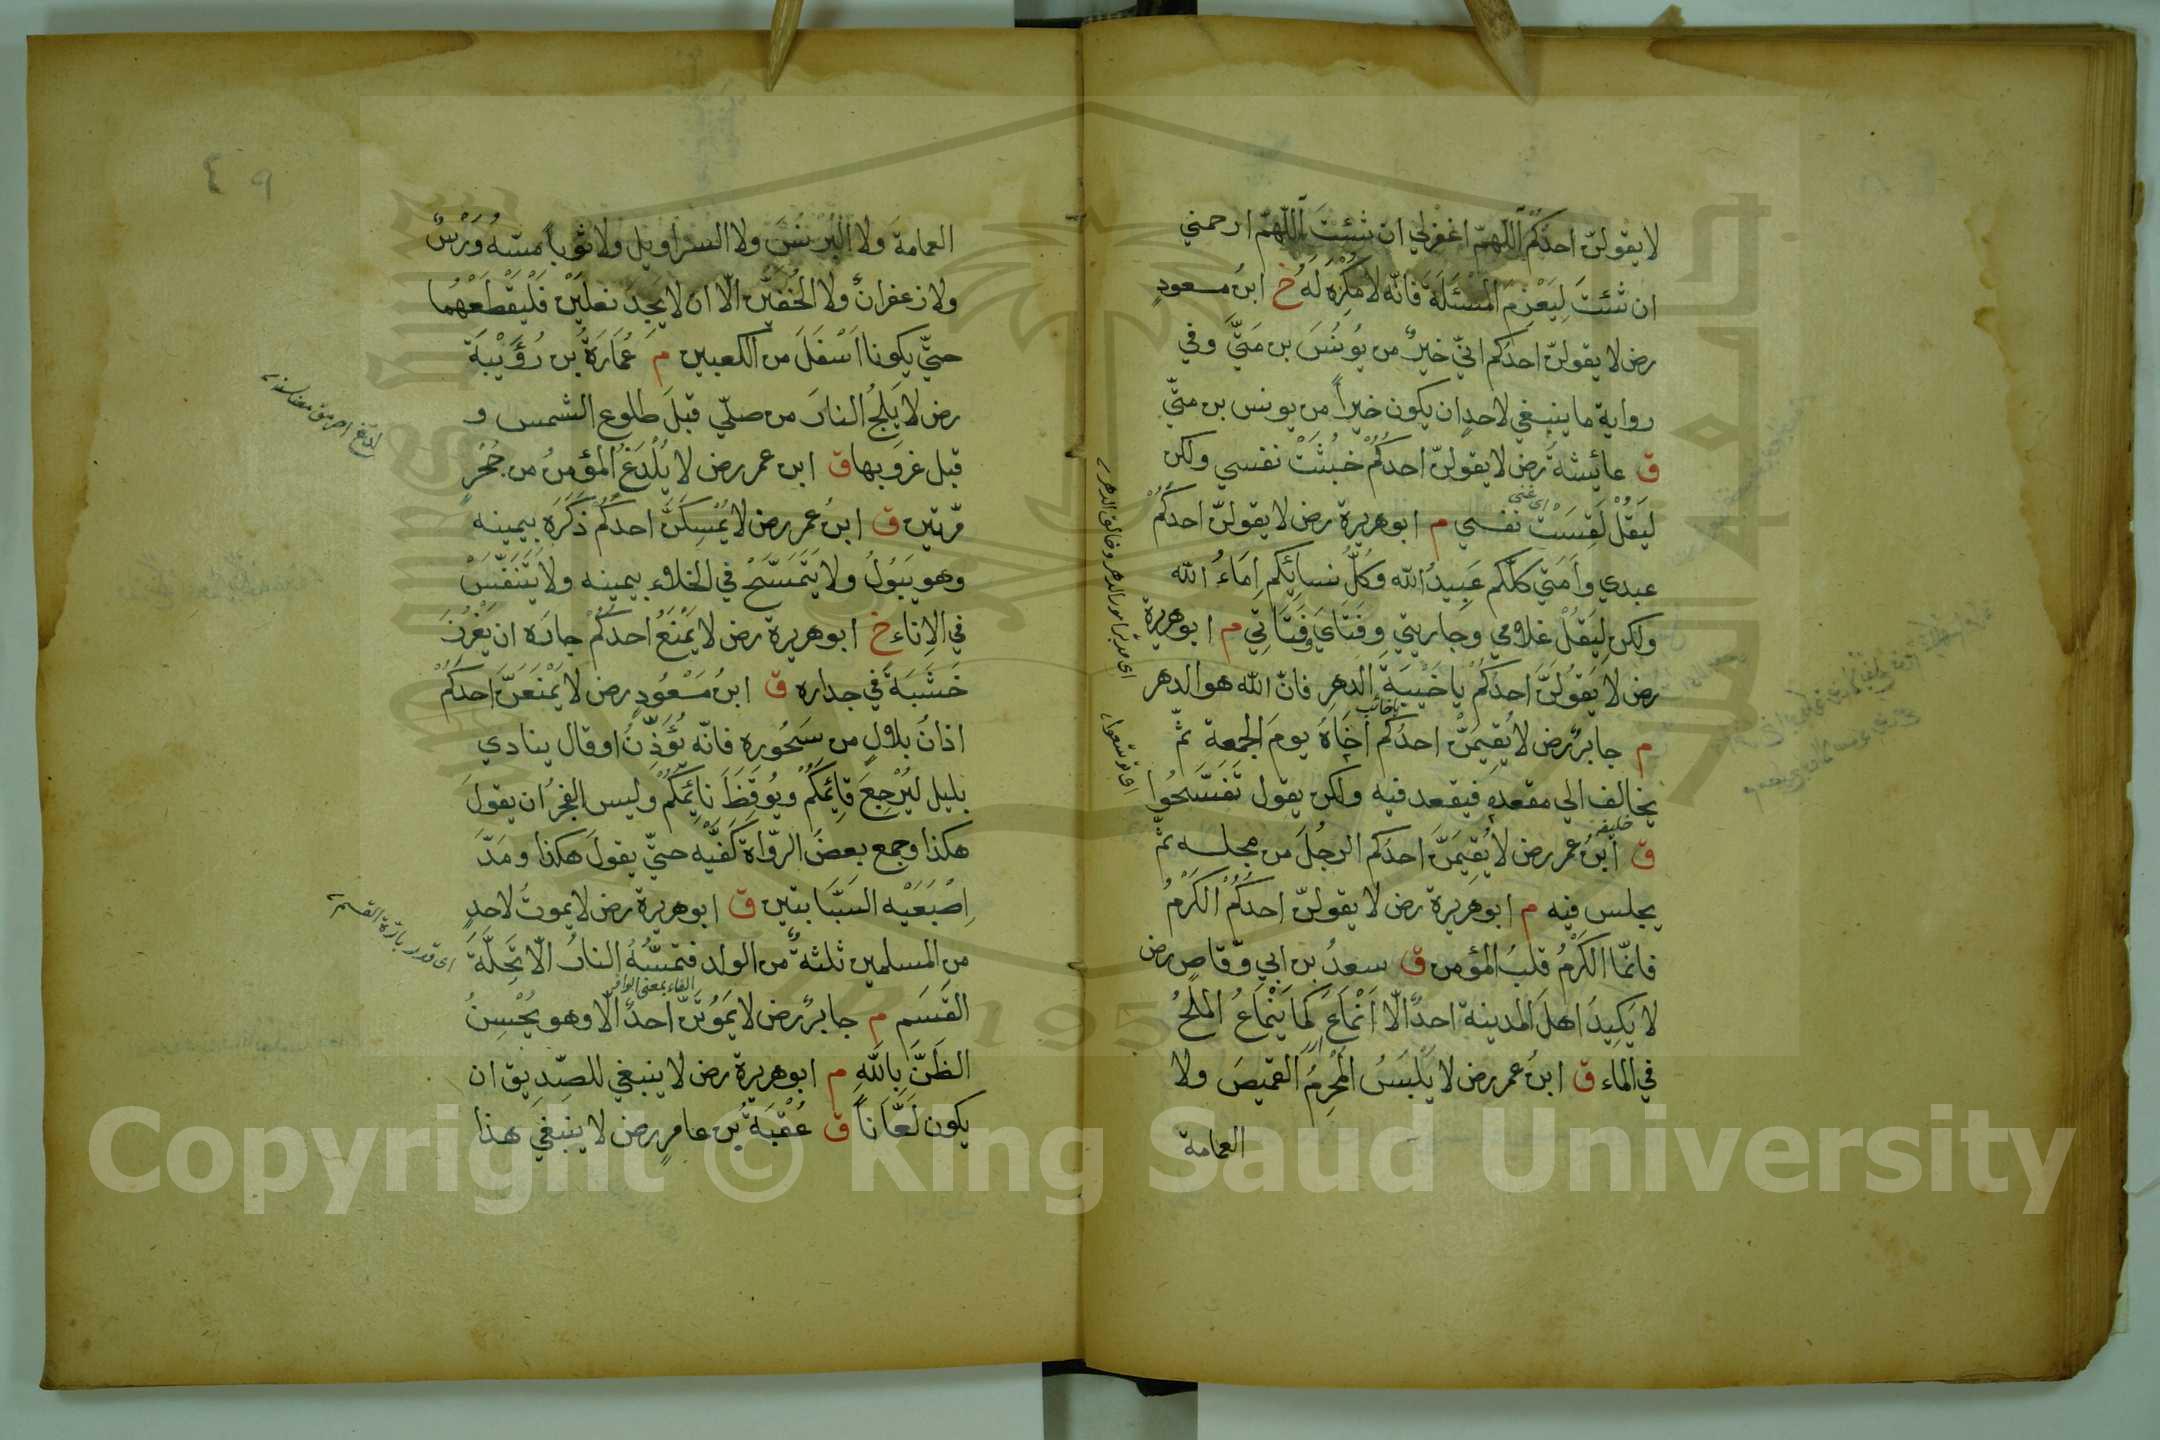 لا يقولنّ احدكم اللّهمّ اغفرلي ان شئتَ اللّهمّ ارحمني
ان شئتَ لِيَعْزِمِ المسْئَلَةَ فانّه لا مُكْرِهَ لَهُ خ ابنُ مسعودٍ
رض لا يقولنّ احدكم انّي خيرٌ من يُونُسَ بن مَتَّي وفي
رواية ما ينبغي لاحدٍ ان يكون خيراً من يونس بن متّي
ق عائيشةُ رض لا يقولنّ احدُكُمْ خبُثَتْ نفسي ولكن
لِيَقُلْ لَقِسَتْ نفسي م ابو هريرة رض لا يقولنّ احدُكُمْ
اى غثى
عبدي وأَمَتي كلّكم عَبِيدُ الله وكُلُّ نسائِكم اِمَاءُ الله
ولكن لِيَقُلْ غلامي وجاريتي وفَتَايَ وفَتَاتِي م ابو هريرة
رض لا يَقُولَنَّ احدُكُمْ يا خَيْبَةَ الدهرِ فانّ الله هو الدهر
يا خائب
م جابرٌ رض لا يُقِيمَنَّ احدُكم اخَاهُ يومَ الجمعة ثمّ
يخالف الي مقعدِهِ فيقعد فيه ولكن يقول تَفَسَّحُوا
خليفه
ق ابنُ عمر رض لا يُقِيمَنَّ احدكم الرجُلَ من مجلسه ثمّ
يجلس فيه م ابو هريرة رض لا يقولنّ احدُكُمْ الكَرْمُ
فانّما الكَرْمُ قلبُ المؤمن ق سعدُ بن ابي وقّاصٍ رض
لا يَكِيدُ اهلَ المدينة احدٌ الّا انْمَاعَ كما يَنْمَاعُ المِلْحُ
في الماء ق ابنُ عمر رض لا يَلْبَسُ المُحْرِمُ القميصَ ولا
العمامة
اى مدبر امور الدهر وخالق الدهر
اى توسعوا
٤٩
العمامةَ ولا البُرْنُسَ ولا السراويل ولا ثوباً مسّهُ وَرْسٌ
ولا زعفرانٌ ولا الخُفَّيْنِ الّا ان لا يَجِدَ نعلَيْنِ فَلْيَقْطَعْهُما
حتّي يكونا اَسْفَلَ من الكعبين م عُمَارَةُ بن رُؤَيْبَةَ
رض لا يَلِجُ النارَ من صلّي قبلَ طلوع الشمس و
قبل غروبها ق ابن عمر رض لا يُلْدَغُ المؤمنُ من جُحْرٍ
مرّتين ق ابنُ عمر رض لا يُمْسِكَنَّ احدُكُمْ ذَكَرَهُ بيمينه
وهو يَبُولُ ولا يَتَمَسَّحْ في الخلاء بيمينه ولا يَتَنَفَّسْ
في الاِناء خ ابو هريرة رض لا يَمْنَعْ احدُكُمْ جارَه ان يَغْرِزَ
خَشَبَةً في جداره ق ابنُ مَسْعُودٍ رض لا يَمْنَعَنَّ احدَكُمْ
اذانُ بلالٍ من سَحُورِهِ فانّه يُؤَذِّنُ او قال ينادي
بليل لِيُرْجِعَ قائِمَكُمْ ويُوقِظَ نائِمَكُمْ وليس الفجرُ ان يقولَ
هكذا وجمع بعضُ الرّواة كَفَّيْه حتّي يقولَ هكذا ومَدَّ
اِصْبَعَيْه السَبَّابتين ق ابو هريرة رض لا يموتُ لاحدٍ
من المسلمين ثلثةٌ من الولد فتمسُّهُ النارُ الّا تَحِلَّةَ
الفاء بمعنى الواو
القَسَمِ م جابرٌ رض لا يَمُوتَنَّ احدٌ الّا وهو يُحْسِنُ
الظَنَّ بِاللهِ م ابو هريرة رض لا ينبغي للصِدّيق ان
يكون لَعَّاناً ق عُقْبَةُ بن عامرٍ رض لا ينبغي هذا
اى قدر بارّة القسم
Copyright © King Saud University
1957